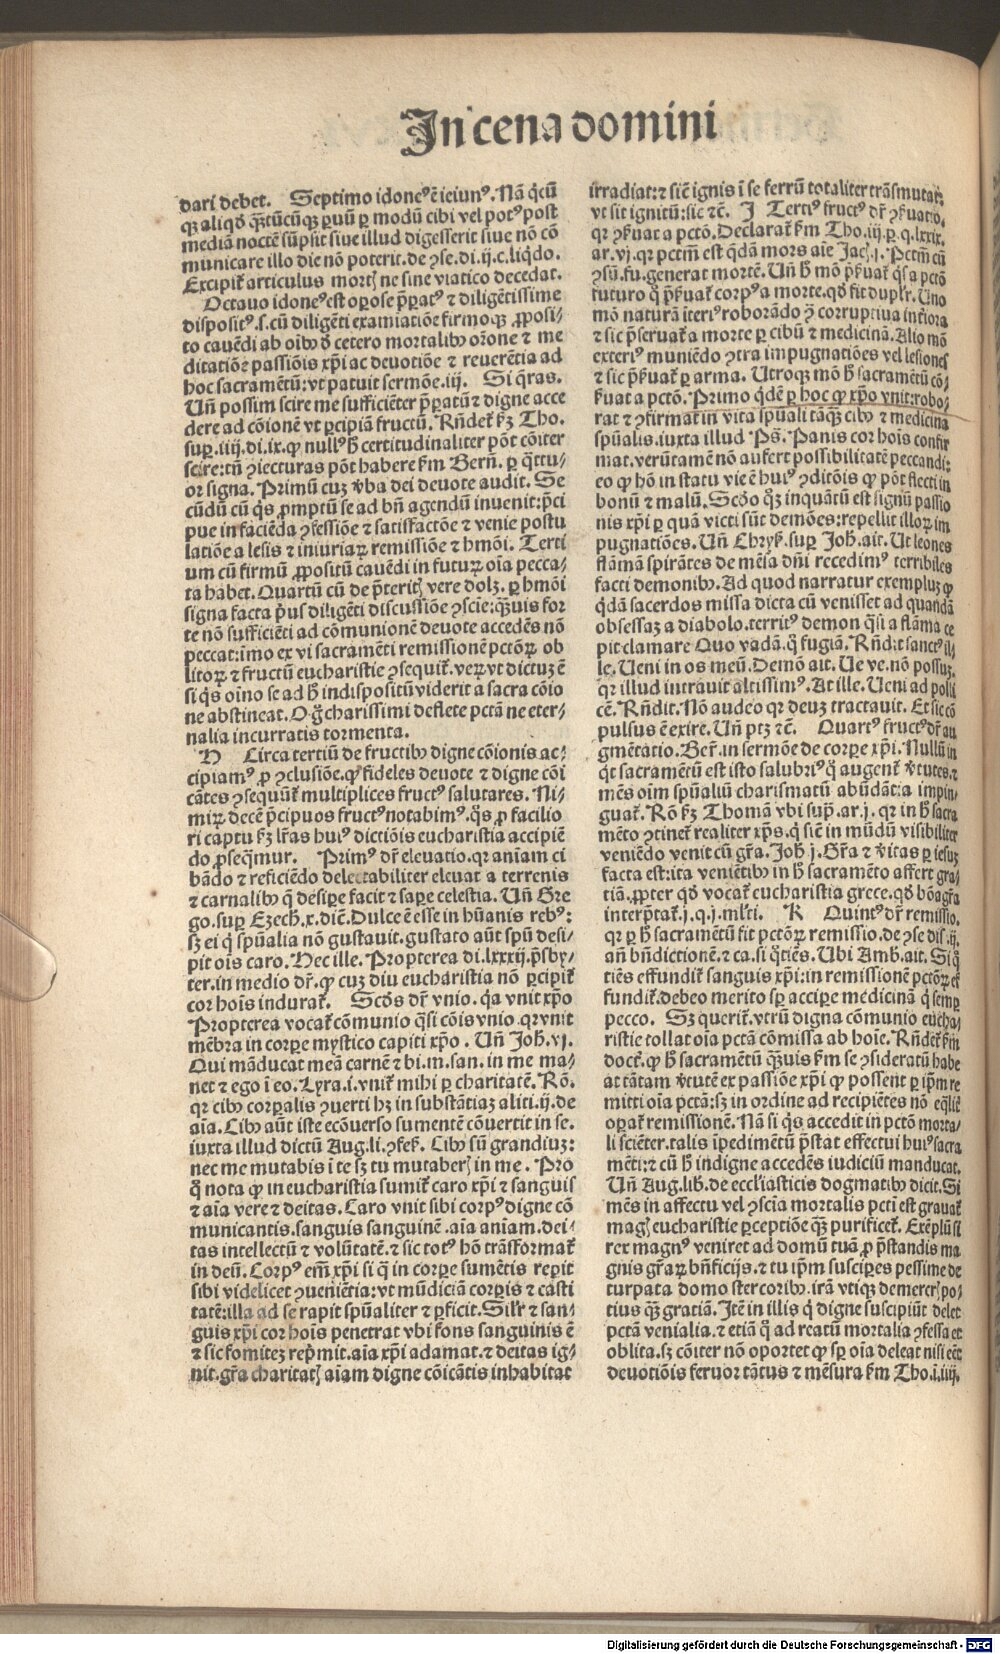 In cena domini
dari debet. Septimo idoneꝰ ē ieiunꝰ. Nā q̇cū
qꝫ aliqd̓ q̄ꝫtūcūqꝫ ꝑuū ꝑ modū cibi vel potꝰ post
mediā noctē sūpsit siue illud digesserit siue nō cō
municare illo die nō poterit. de ꝯse. di. ij. c. liq̇do.
Excipit̃ articulus mortꝭ ne sine viatico decedat.
Octauo idoneꝰ est oꝑose p̄ꝑatꝰ ⁊ diligētissime
dispositꝰ .s. cū diligēti examiatiōe firmoqꝫ ꝓposi⸗
to cauēdi ab oībꝰ d̓ cetero mortalibꝰ orōne ⁊ me
ditatiōe passiōis xp̄i ac deuotiōe ⁊ reuerētia ad
hoc sacramētū: vt patuit sermōe .iij. Si q̄ras.
Uñ possim scire me sufficiēter p̄ꝑatū ⁊ digne acce
dere ad cōionē vt ꝑcipiā fructū. Rñdet̃ ẜm Tho.
suꝑ .iiij. di. ix. ꝙ nullꝰ h̓ certitudinaliter pōt cōiter
scire: tñ ꝯiecturas pōt habere ẜm Berñ. ꝑ q̄ttu⸗
or signa. Primū cuꝫ v̓ba dei deuote audit. Se
cūdū cū q̇s ꝓmptū se ad bñ agendū inuenit: p̄ci
pue in faciēda ꝯfessiōe ⁊ satisfactōe ⁊ venie postu
latiōe a lesis ⁊ iniuriaꝝ remissiōe ⁊ hmōi. Terti
um cū firmū ꝓpositū cauēdi in futuꝝ oīa pecca⸗
ta habet. Quartū cū de p̄teritꝭ vere dolꝫ. ꝑ hmōi
signa facta p̓us diligēti discussiōe ꝯscie: q̄ꝫuis for
te nō sufficiēti ad cōmunionē deuote accedēs nō
peccat: īmo ex vi sacramēti remissionē pctōꝝ ob
litoꝝ ⁊ fructū eucharistie ꝯsequit̃. veꝝ vt dictuꝫ ē
si q̇s oīno se ad h̓ indispositū viderit a sacra cōio
ne abstineat. O g̃ charissimi deflete pctā ne eter⸗
nalia incurratis tormenta.
H Circa tertiū de fructibꝰ digne cōionis ac⸗
cipiamꝰ ꝓ ꝯclusiōe. ꝙ fideles deuote ⁊ digne cōi
cātes ꝯsequūt̃ multiplices fructꝰ salutares. Ni⸗
miꝝ decē p̄cipuos fructꝰ notabimꝰ. q̇s ꝓ facilio
ri captu ẜꝫ lr̄as huiꝰ dictiōis eucharistia accipiē
do ꝓseq̄mur. Primꝰ dr̄ eleuatio. qr aīam ci
bādo ⁊ reficiēdo delectabiliter eleuat a terrenis
⁊ carnalibꝰ q̄ desiꝑe facit ⁊ saꝑe celestia. Uñ Gre
go. suꝑ Ezech. x. diē. Dulce ē esse in hūanis rebꝰ:
sꝫ ei q̇ spūalia nō gustauit. gustato aūt spū desi⸗
pit oīs caro. Hec ille. Propterea di. lxxxij. p̄sby⸗
ter. in medio dr̄. ꝙ cuꝫ diu eucharistia nō ꝑcipit̃
cor hoīs indurat̃. Scd̓s dr̄ vnio. q̇a vnit xp̄o
Propterea vocat̃ cōmunio q̄si cōis vnio. qr vnit
mēbra in corꝑe mystico capiti xp̄o. Uñ Joh̓. vj.
Qui māducat meā carnē ⁊ bi. m. san. in me ma⸗
net ⁊ ego ī eo. Lyra. i. vnit̃ mihi ꝑ charitatē. Rō.
qr cibꝰ corꝑalis ꝯuerti hꝫ in substātiaꝫ aliti. ij. de
aīa. Cibꝰ aūt iste ecōuerso sumentē cōuertit in se.
iuxta illud dictū Aug. li. ꝯfeẜ. Cibꝰ sū grandiuꝫ:
nec me mutabis ī te sꝫ tu mutaberꝭ in me. Pro
q̊ nota ꝙ in eucharistia sumit̃ caro xp̄i ⁊ sanguis
⁊ aīa vere ⁊ deitas. Caro vnit sibi corpꝰ digne cō
municantis. sanguis sanguinē. aīa aīam. dei⸗
tas intellectū ⁊ volūtatē. ⁊ sic totꝰ hō trāsformat̃
in deū. Corpꝰ em̄ xp̄i si q̄ in corꝑe sumētis reꝑit
sibi videlicet ꝯueniētia: vt mūdiciā corꝑis ⁊ casti
tatē: illa ad se rapit spūaliter ⁊ ꝑficit. Silr̄ ⁊ san⸗
guis xp̄i cor hoīs penetrat vbi fons sanguinis ē
⁊ sic fomiteꝫ rep̓mit. aīa xp̄i adamat. ⁊ deitas ig⸗
nit. gr̄a charitatꝭ aīam digne cōicātis inhabitat
irradiat: ⁊ sic̄ ignis ī se ferrū totaliter trāsmutat.
vt sit ignitū: sic ⁊c̄. J Tertiꝰ fructꝰ dr̄ ꝯẜuatio.
qr ꝯẜuat a pctō. Declarat̃ ẜm Tho. iij. ꝑ. q. lxxix.
ar. vj. qr pctm̄ est q̄dā mors aīe Jac̄. j. Pctm̄ cū
ꝯsū. fu. generat mortē. Uñ h̓ mō p̄ẜuat̃ q̇s a pctō
futuro q̊ p̄ẜuat̃ corpꝰ a morte. qd̓ fit duplr̄. Uno
mō naturā interiꝰ roborādo ꝯ̄ corruptiua inťiora
⁊ sic p̄seruat̃ a morte ꝑ cibū ⁊ medicinā. Alio mō
exteriꝰ muniēdo ꝯtra impugnatiōes vel lesiones
⁊ sic p̄ẜuat̃ ꝑ arma. Utroqꝫ mō h̓ sacramētū cō⸗
ẜuat a pctō. Primo q̇dē ꝑ hoc ꝙ xp̄o vnit: robo⸗
rat ⁊ ꝯfirmat in vita spūali tāqꝫ cibꝰ ⁊ medicina
spūalis. iuxta illud Ps̄. Panis cor hoīs confir
mat. verūtamē nō aufert possibilitatē peccandi:
eo ꝙ hō in statu vie ē huiꝰ ꝯditōis ꝙ pōt flecti in
bonū ⁊ malū. Scd̓o q̄ꝫ inquātū est signū passio
nis xp̄i ꝑ quā victi sūt demōes: repellit illoꝝ im
pugnatiōes. Uñ Chryẜ. suꝑ Joh̓. ait. Ut leones
flāmā spirātes de mēsa dñi recedimꝰ terribiles
facti demonibꝰ. Ad quod narratur exempluꝫ ꝙ
q̇dā sacerdos missa dicta cū venisset ad quandā
obsessaꝫ a diabolo. territꝰ demon q̄si a flāma ce
pit clamare Quo vadā. q̊ fugiā. Rñdit sanctꝰ il⸗
le. Ueni in os meū. Demō ait. Ue ve. nō possuꝫ.
qr illud intrauit altissimꝰ. At ille. Ueni ad polli
cē. Rñdit. Nō audeo qr deuꝫ tractauit. Et sic cō
pulsus ē exire. Uñ ptꝫ ⁊c̄. Quartꝰ fructꝰ dr̄ au
gmētatio. Ber̄. in sermōe de corꝑe xp̄i. Nullū in
q̇t sacramētū est isto salubriꝰ q̊ augent̃ v̓tutes. ⁊
mēs oīm spūaliū charismatū abūdātia impin⸗
guat̃. Rō ẜꝫ Thomā vbi sup̄. ar. j. qr in h̓ sacra
mēto ꝯtinet̃ realiter xp̄s. q̇ sic̄ in mūdū visibiliter
veniēdo venit cū gr̄a. Joh̓. j. Gr̄a ⁊ v̓itas ꝑ iesuꝫ
facta est: ita veniētibꝰ in h̓ sacramēto affert gra⸗
tiā. ꝓpter qd̓ vocat̃ eucharistia grece. qd̓ bōa gr̄a
interp̄tat̃. j. q. j. ml̓ti. K Quintꝰ dr̄ remissio.
qr ꝑ h̓ sacramētū fit pctōꝝ remissio. de ꝯse dis. ij.
añ bñdictionē. ⁊ ca. si q̇tiēs. Ubi Amb. ait. Si q̇
tiēs effundit̃ sanguis xp̄i: in remissionē pctōꝝ ef
fundit̃. debeo merito sꝑ acciꝑe medicinā q̇ semꝑ
pecco. Sꝫ querit̃. vtrū digna cōmunio eucha⸗
ristie tollat oīa pctā cōmissa ab hoīe. Rñdet̃ ẜm
doct̃. ꝙ h̓ sacramētū q̄ꝫuis ẜm se ꝯsideratū habe
at tātam v̓tutē ex passiōe xp̄i ꝙ possent ꝑ ip̄m re
mitti oīa pctā: sꝫ in ordine ad recipiētes nō eq̄lit̓
oꝑat̃ remissionē. Nā si q̇s accedit in pctō morta⸗
li sciēter. talis īpedimētū p̄stat effectui huiꝰ sacra
mēti: ⁊ cū h̓ indigne accedēs iudiciū manducat.
Uñ Aug. lib. de eccl̓iasticis dogmatibꝰ dicit. Si
mēs in affectu vel ꝯscīa mortalis pcti est grauat̃
magꝭ eucharistie ꝑceptiōe q̄ꝫ purificet̃. Exēplū si
rex magnꝰ veniret ad domū tuā ꝓ p̄standis ma
gnis gr̄aꝝ bñficijs. ⁊ tu ip̄m susciꝑes pessime de
turpata domo stercoribꝰ. irā vtiqꝫ demererꝭ po⸗
tius q̄ꝫ gratiā. Itē in illis q̇ digne suscipiūt delet
pctā venialia. ⁊ etiā q̄ ad reatū mortalia ꝯfessa et
oblita. sꝫ cōiter nō oportet ꝙ sꝑ oīa deleat nisi eēt
deuotiōis feruor tātus ⁊ mēsura ẜm Tho. i. iiij.
Digitalisierung gefördert durch die Deutsche Forschungsgemeinschaft - DFG